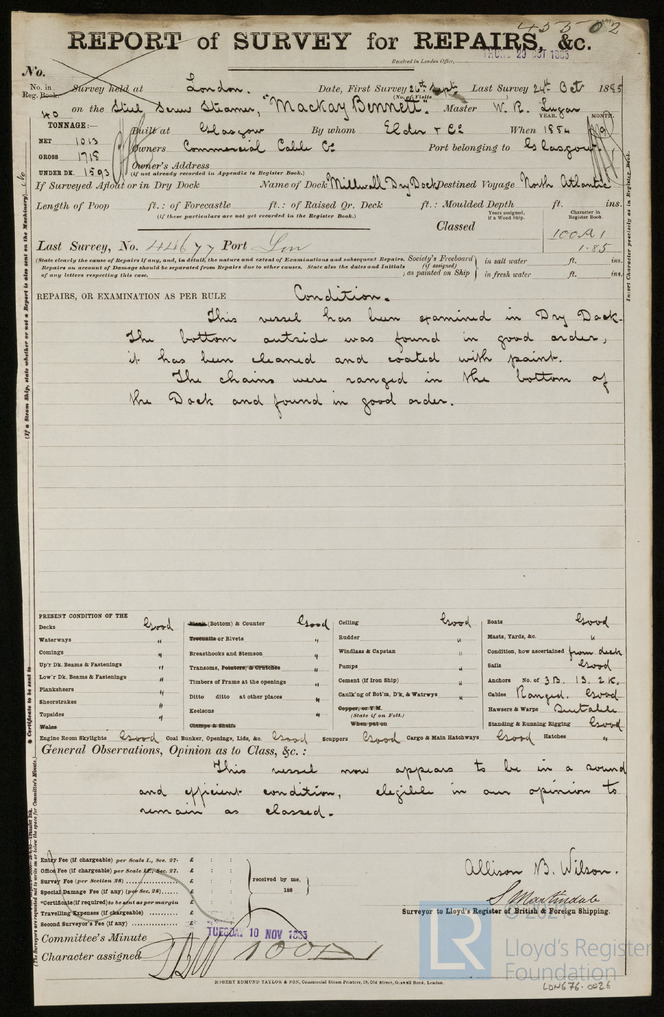 45502
REPORT of SURVEY for REPAIRS, &c.
Received in London Office, THURS. 29 OCT 1885
No.
No. in Reg. Book. Survey held at London. Date, First Survey 26th Sept. Last Survey 24th Oct 1885
(No. of Visits )
40 on the Steel Screw Steamer, "Mackay Bennett". Master W. R. Lugar
TONNAGE:— YEAR. MONTH.
NET 1013 Built at Glasgow By whom Elder & Co When 1884 9
GROSS 1718 Owners Commercial Cable Co Port belonging to Glasgow
UNDER DK. 1593 Owner's Address
(if not already recorded in Appendix to Register Book.)
If Surveyed Afloat or in Dry Dock Name of Dock Millwall Dry Dock Destined Voyage North Atlantic
Length of Poop ft.: of Forecastle ft.: of Raised Qr. Deck ft.: Moulded Depth ft. ins.
(if these particulars are not yet recorded in the Register Book.)
Years assigned, if a Wood Ship. Character in Register Book.
Classed 100A1
1.85
Last Survey, No. 44677 Port Lon
(State clearly the cause of Repairs if any, and, in detail, the nature and extent of Examinations and subsequent Repairs.
Repairs on account of Damage should be separated from Repairs due to other causes. State also the dates and Initials
of any letters respecting this case.
Society's Freeboard (if assigned) as painted on Ship
in salt water ft. ins.
in fresh water ft. ins.
REPAIRS, OR EXAMINATION AS PER RULE Condition.
This vessel has been examined in Dry Dock.
The bottom outside was found in good order,
it has been cleaned and coated with paint.
The chains were ranged in the bottom of
the Dock and found in good order.
PRESENT CONDITION OF THE
Decks Good
Waterways "
Comings "
Up'r Dk. Beams & Fastenings "
Low'r Dk. Beams & Fastenings "
Planksheers "
Sheerstrakes "
Topsides "
Wales
Plank (Bottom) & Counter Good
Treenails or Rivets "
Breasthooks and Stemson "
Transoms, Pointers, & Crutches "
Timbers of Frame at the openings "
Ditto ditto at other places "
Keelsons "
Clamps & Shelfs
Ceiling Good
Rudder "
Windlass & Capstan "
Pumps "
Cement (if Iron Ship) "
Caulk'ng of Bot'm, D'k, & Watrwys "
Copper, or Y.M.
(State if on Felt.)
When put on
Boats Good
Masts, Yards, &c. "
Condition, how ascertained from deck
Sails Good
Anchors No. of 3B. 1S. 2K.
Cables Ranged. Good
Hawsers & Warps Suitable
Standing & Running Rigging Good
Engine Room Skylights Good Coal Bunker, Openings, Lids, &c. Good Scuppers Good Cargo & Main Hatchways Good Hatches "
General Observations, Opinion as to Class, &c.:
This vessel now appears to be in a sound
and efficient condition, eligible in our opinion to
remain as classed.
Entry Fee (if chargeable) per Scale I., Sec. 27. £ : :
Office Fee (if chargeable) per Scale II., Sec. 27. £ : :
Survey Fee (per Section 28) £ : :
Special Damage Fee (if any) (per Sec. 28) £ : :
*Certificate (if required) to be sent as per margin
Travelling Expenses (if chargeable) £ : :
Second Surveyor's Fee (if any) £ : :
received by me,
188
Allison B. Wilson.
S Martindale
Surveyor to Lloyd's Register of British & Foreign Shipping.
Committee's Minute TUESDAY 10 NOV 1885
Character assigned 100A1
ROBERT EDMUND TAYLOR & SON, Commercial Steam Printers, 19, Old Street, Goswell Road, London.
© 2021
LR
Lloyd's Register
Foundation
LDN676-0026